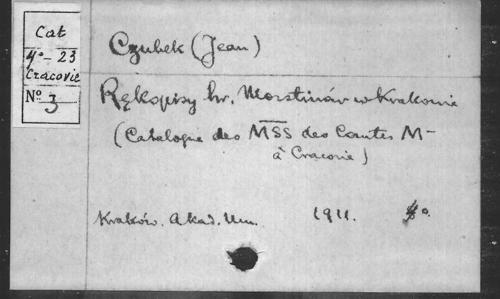 Cat
4º-23
Cracovie
Nº 3
Czubek (Jean)
Rękopisy hr. Morstinów w Krakowie
(Catalogue des MSS des Comtes M-
à Cracovie)
Kraków. Akad. Um. 1911. 4º.